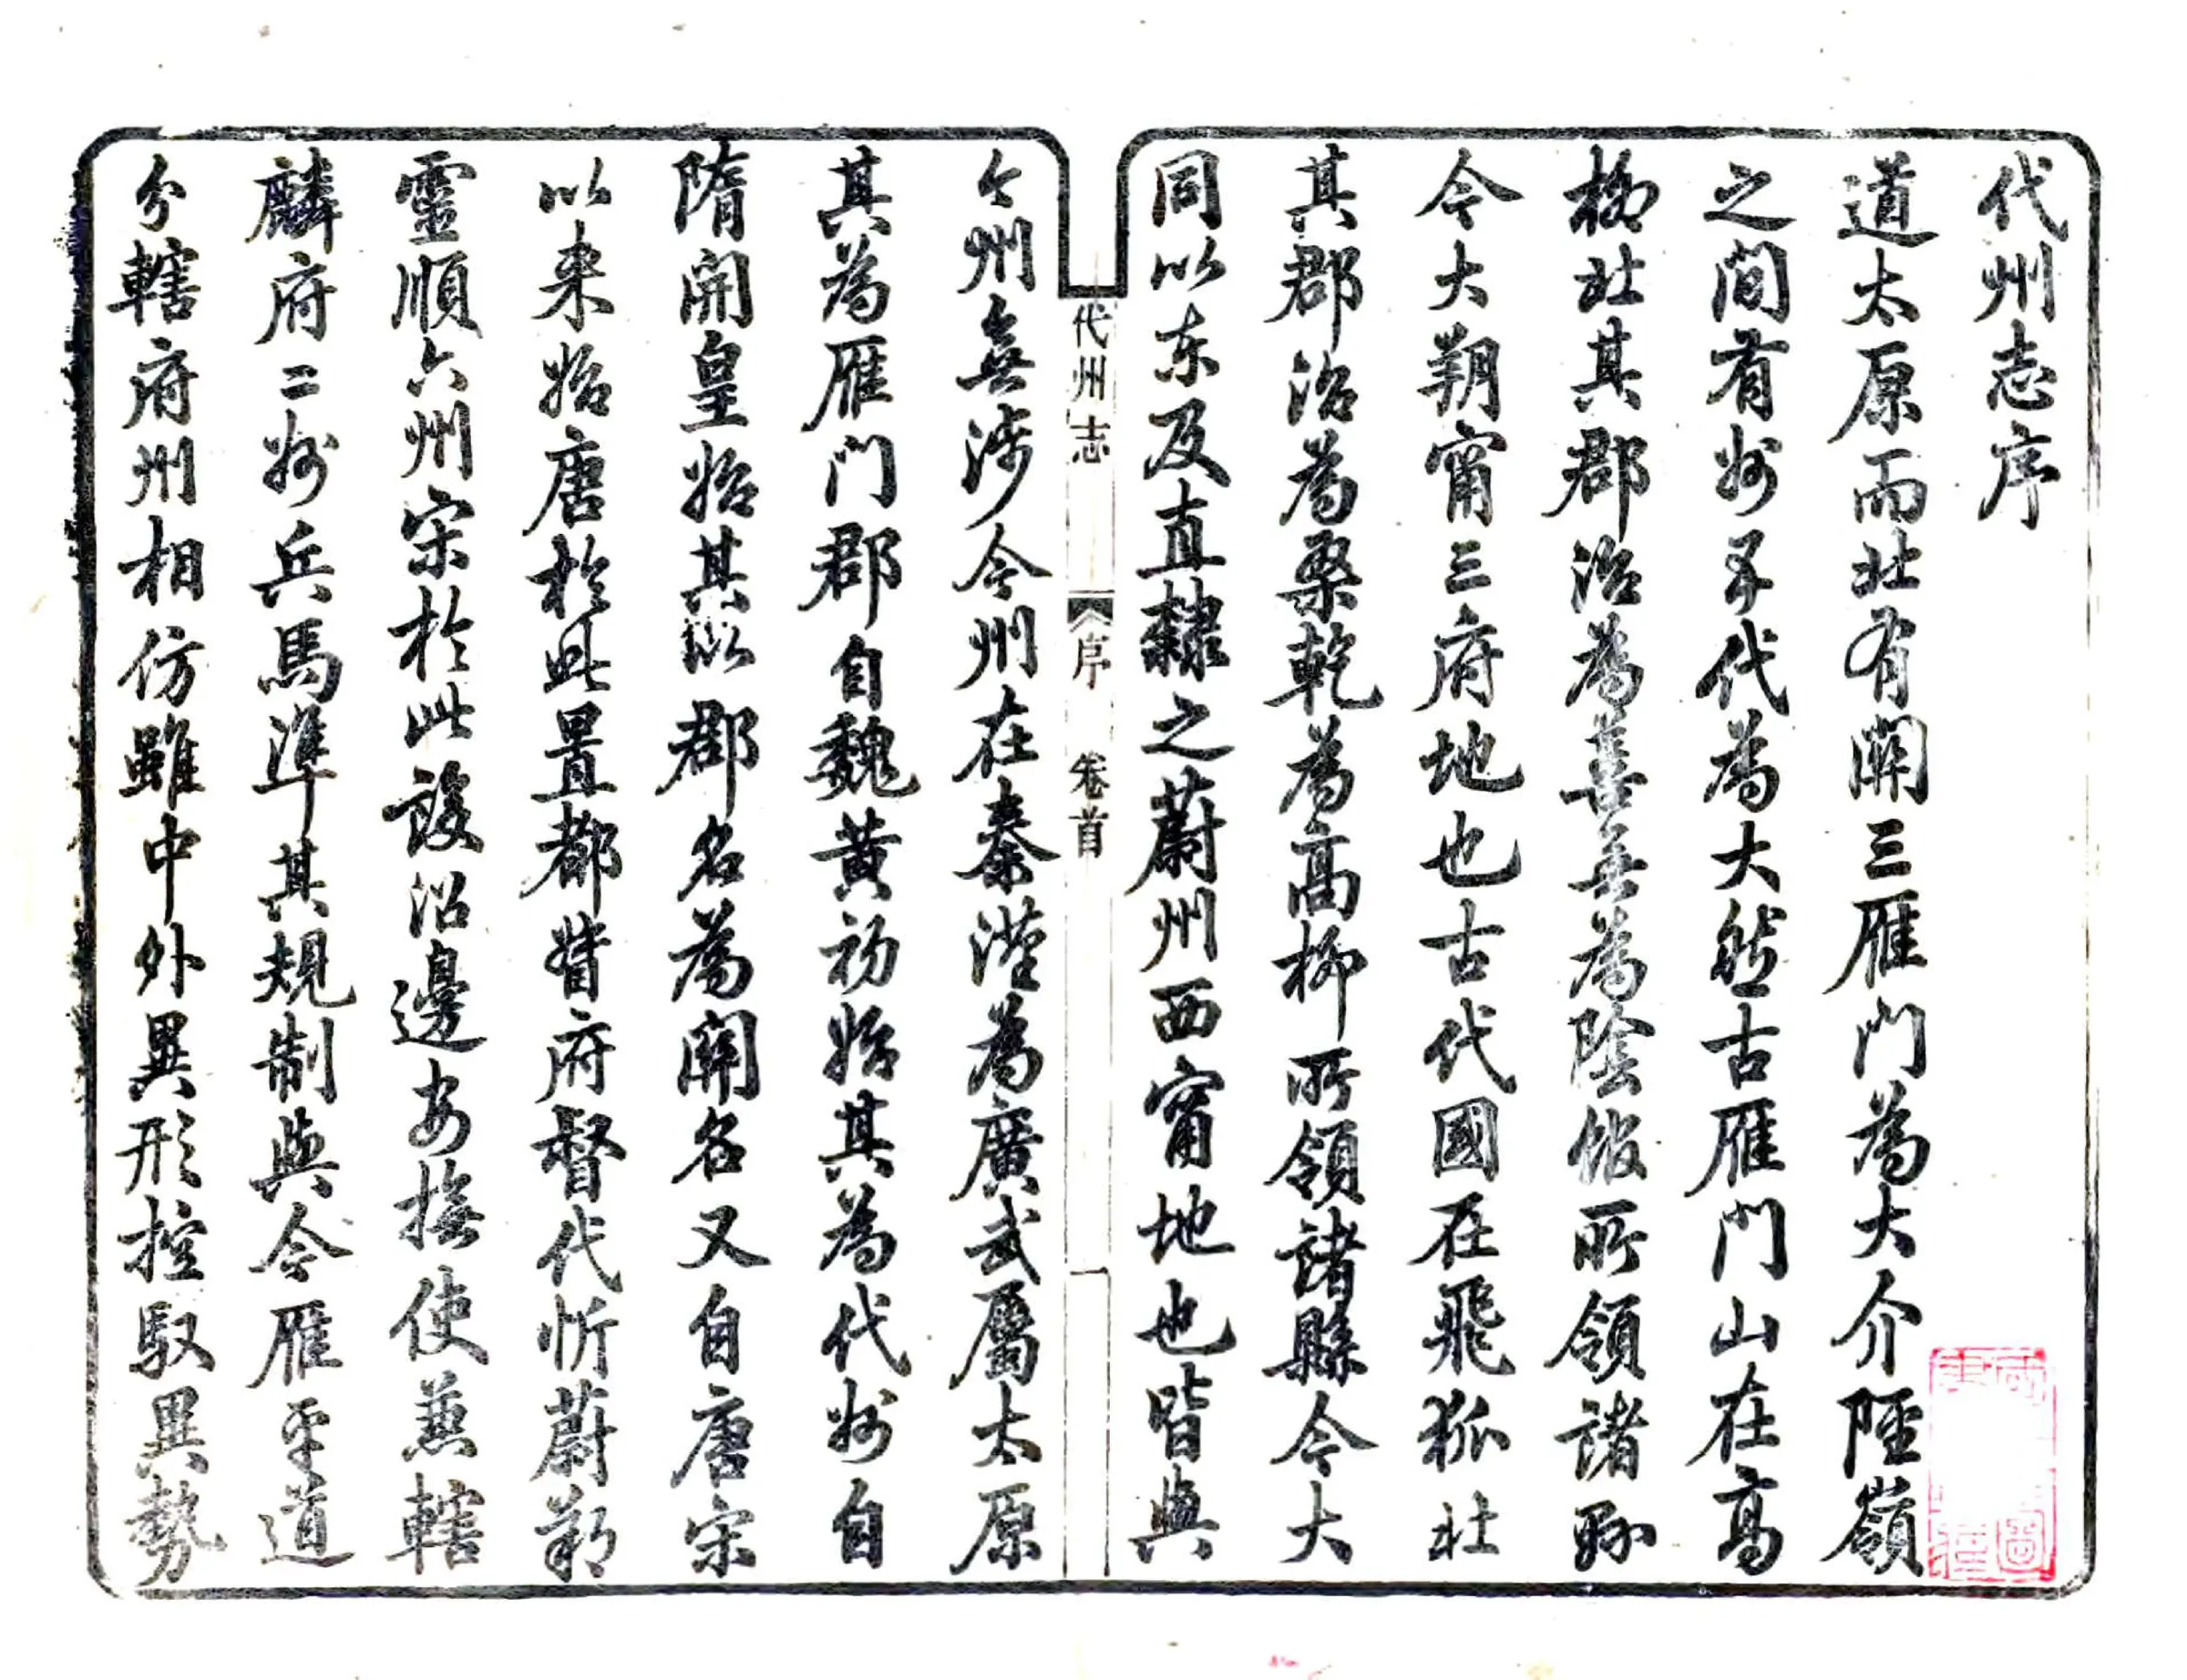 代州志序
道太原而北有關三雁門為大介陘嶺
之間有州二代為大然古雁門山在高
柳北其郡治為善無為陰館所領諸縣
今大朔甯三府地也古代國在飛狐北
其郡治為桑乾為高柳所領諸縣今大
同以东及直隸之蔚州西甯地也皆與
代州志
序
卷首
一
今州無涉今州在秦漢為廣武屬太原
其為雁门郡自魏黄初始其為代州自
隋開皇始其以郡名為關名又自唐宋
以来始唐於此置都督府督代忻蔚朔
靈順六州宋於此設沿邊安撫使兼轄
麟府二州兵馬準其規制與今雁平道
分轄府州相仿雖中外異形控馭異勢